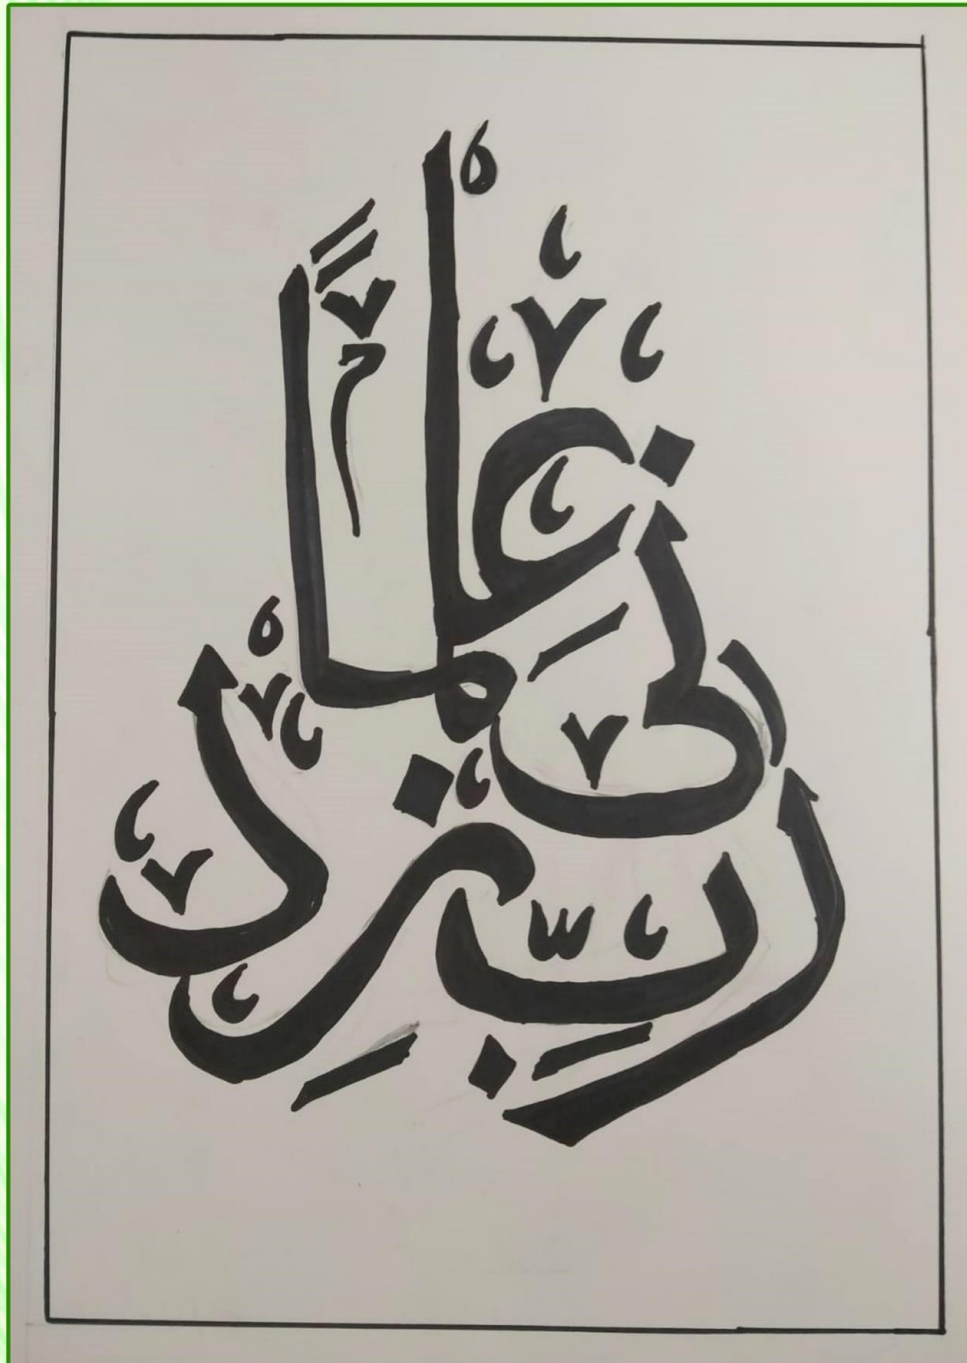 رَبِّ زِدْنِي عِلْمًا